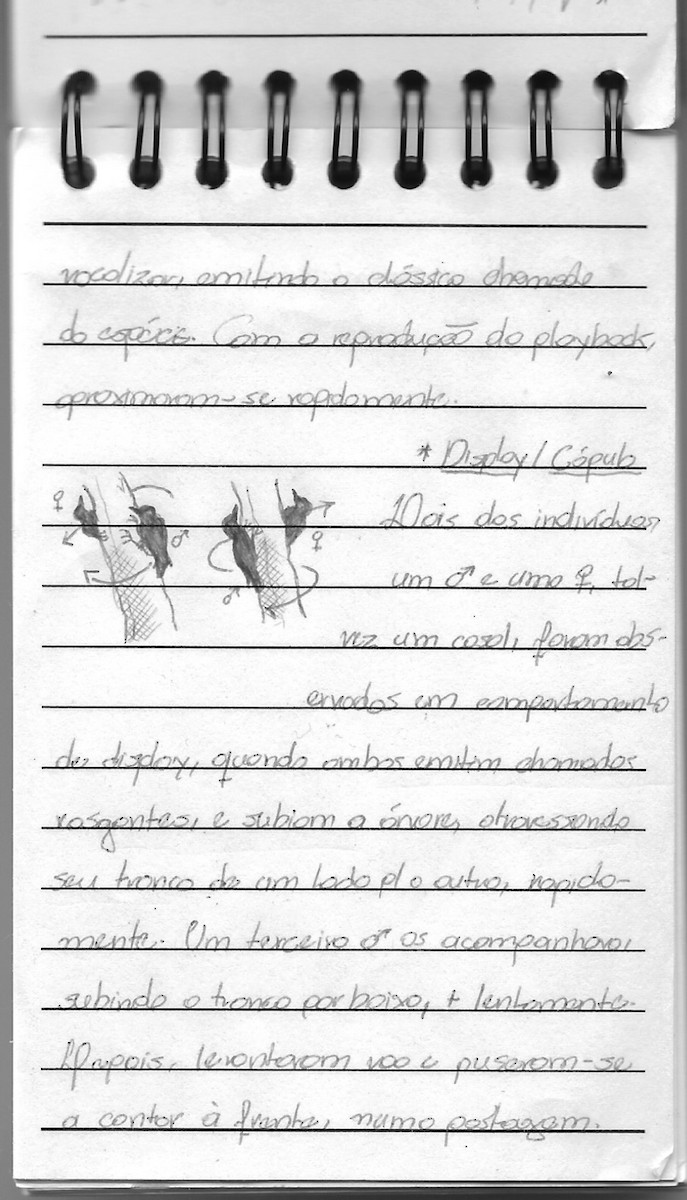 vocalizar, emitindo o clássico chamado
da espécie. Com a reprodução do playback,
aproximaram-se rapidamente.
* Display / Cópula
♀ ♂ ♂ ♀
Dois dos indivíduos,
um ♂ e uma ♀, tal-
vez um casal, foram obs-
ervados em comportamento
de display, quando ambos emitim chamados
rasgantes, e subiam a árvore, atravessando
seu tronco de um lado p/ o outro, rapida-
mente. Um terceiro ♂ os acompanhava,
subindo o tronco por baixo, + lentamente.
Depois, levantaram voo e puseram-se
a cantar à frente, numa pastagem.